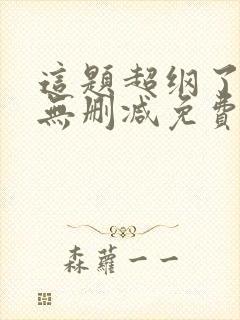 這題超纲了
無删減免費
森蘿一一